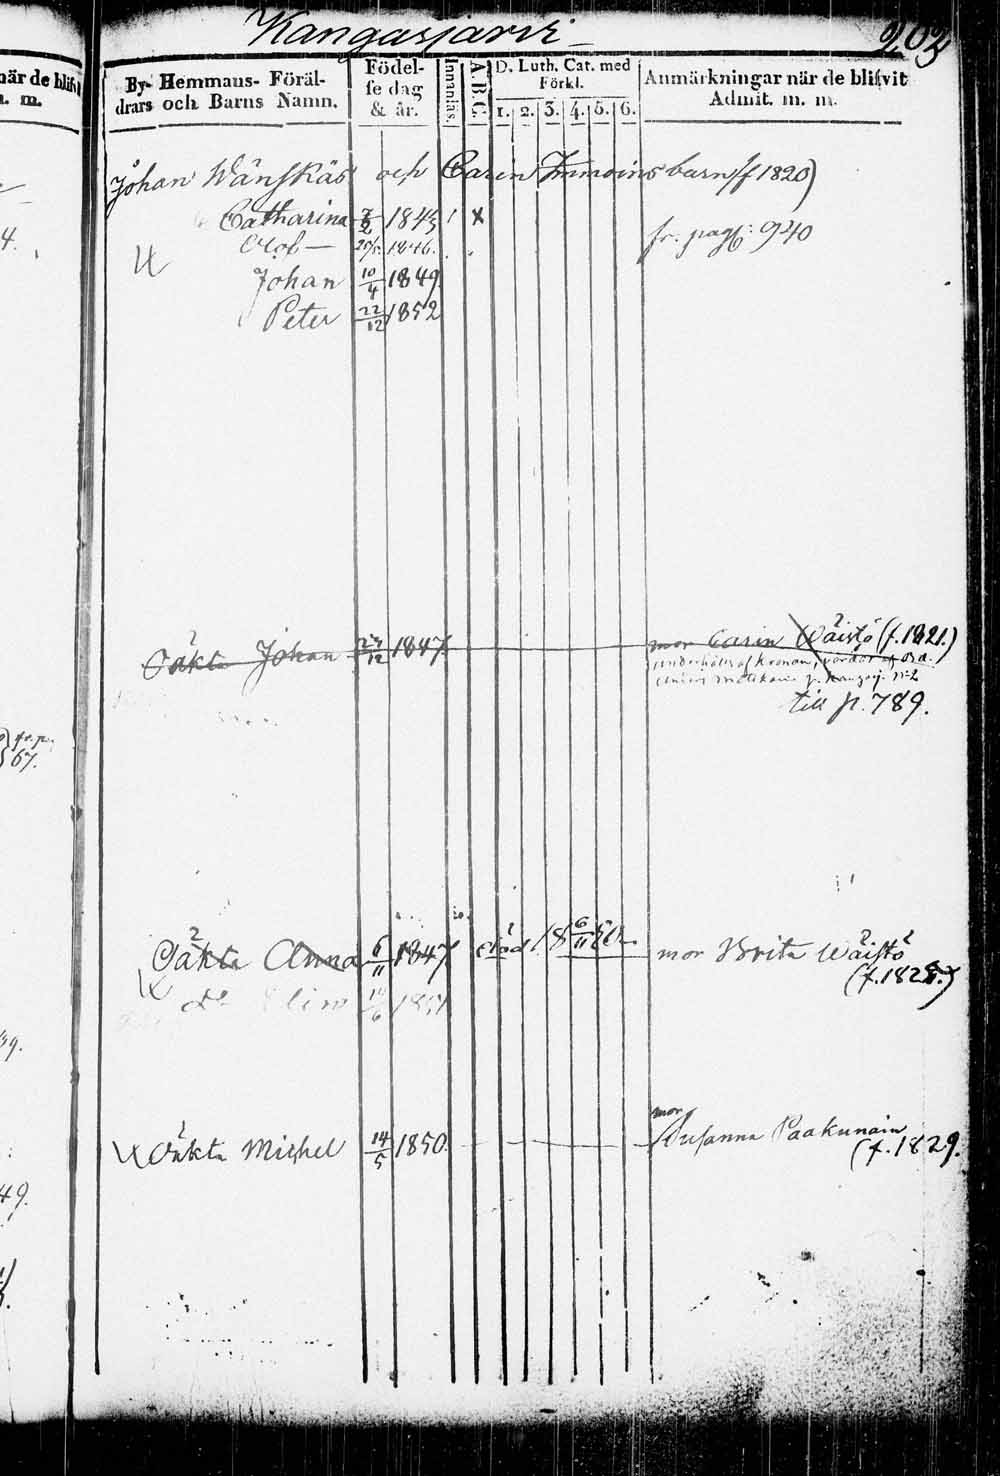 Kangasjarvi
203
när de blifvit
m. m.
By- Hemmans- Föräl-
drars och Barns Namn.
Födel-
se dag
& år.
Innanläs.
A.B.C.
D. Luth. Cat. med
Förkl.
1. 2. 3. 4. 5. 6.
Anmärkningar när de blifvit
Admit. m. m.
Johan Wänskäs och Carin Immoins barn (f 1820)
Catharina 1843 X
4.
Olof — 1846.
fr. pag: 940
Johan 10/4 1849
Peter 22/12 1852
Oäkta Johan 1847 mor Carin Wäistö (f. 1821.)
underhålles af Kronan, vårdas af
till p. 789.
fr. p.
67.
Oäkta Anna 6/11 1847 död 18 6/11 50 mor Brita Wäistö
(f. 1828.)
Do 1851
39.
mor
Oäkta Michel 14/5 1850 Susanna Paakunain
(f. 1829.
49.